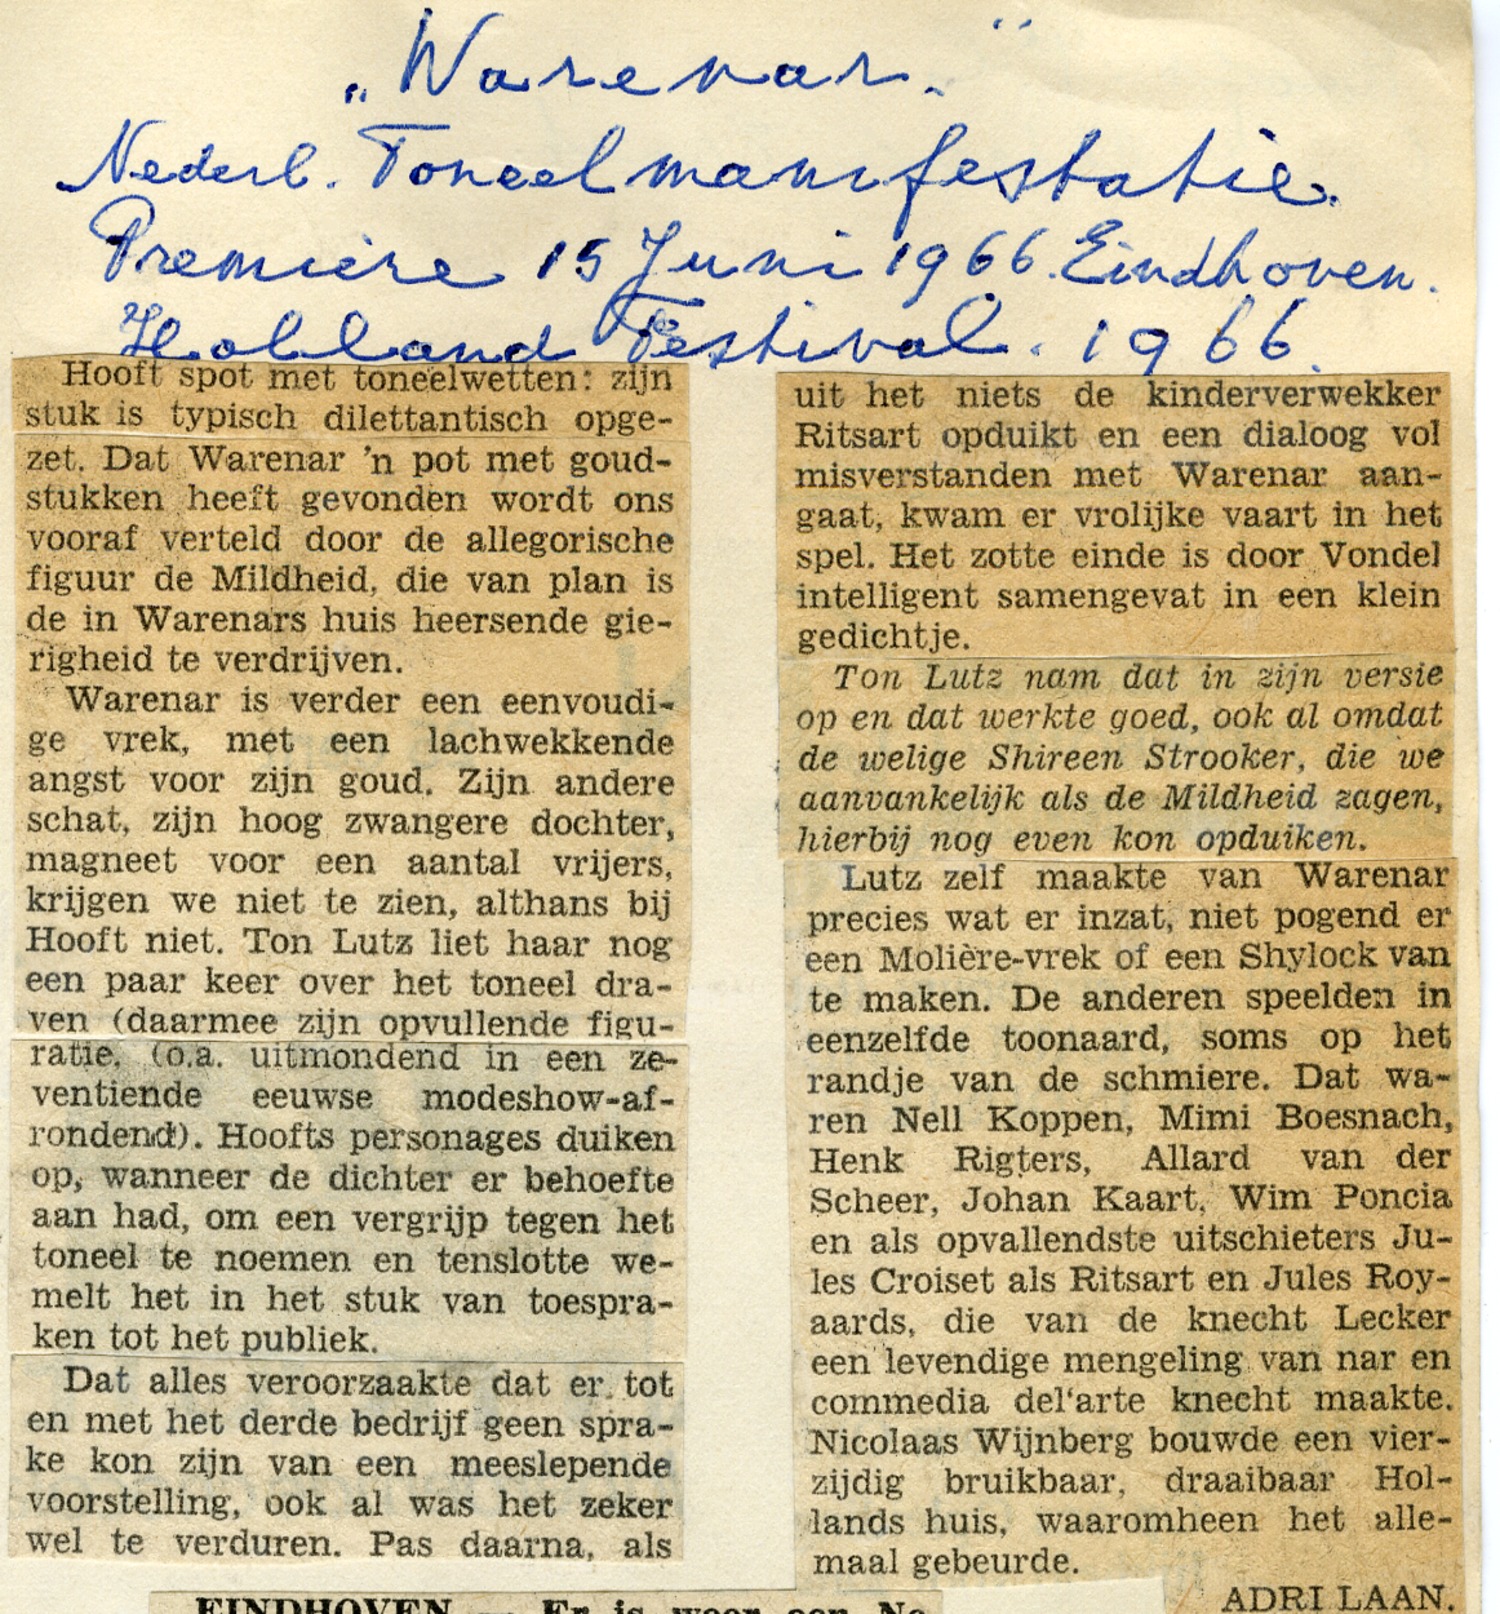 „Warenar."
Nederl. Toneelmanifestatie.
Premiere 15 Juni 1966. Eindhoven.
Holland Festival. 1966.
Hooft spot met toneelwetten: zijn
stuk is typisch dilettantisch opge-
zet. Dat Warenar 'n pot met goud-
stukken heeft gevonden wordt ons
vooraf verteld door de allegorische
figuur de Mildheid, die van plan is
de in Warenars huis heersende gie-
righeid te verdrijven.
Warenar is verder een eenvoudi-
ge vrek, met een lachwekkende
angst voor zijn goud. Zijn andere
schat, zijn hoog zwangere dochter,
magneet voor een aantal vrijers,
krijgen we niet te zien, althans bij
Hooft niet. Ton Lutz liet haar nog
een paar keer over het toneel dra-
ven (daarmee zijn opvullende figu-
ratie, (o.a. uitmondend in een ze-
ventiende eeuwse modeshow-af-
rondend). Hoofts personages duiken
op, wanneer de dichter er behoefte
aan had, om een vergrijp tegen het
toneel te noemen en tenslotte we-
melt het in het stuk van toespra-
ken tot het publiek.
Dat alles veroorzaakte dat er tot
en met het derde bedrijf geen spra-
ke kon zijn van een meeslepende
voorstelling, ook al was het zeker
wel te verduren. Pas daarna, als
uit het niets de kinderverwekker
Ritsart opduikt en een dialoog vol
misverstanden met Warenar aan-
gaat, kwam er vrolijke vaart in het
spel. Het zotte einde is door Vondel
intelligent samengevat in een klein
gedichtje.
Ton Lutz nam dat in zijn versie
op en dat werkte goed, ook al omdat
de welige Shireen Strooker, die we
aanvankelijk als de Mildheid zagen,
hierbij nog even kon opduiken.
Lutz zelf maakte van Warenar
precies wat er inzat, niet pogend er
een Molière-vrek of een Shylock van
te maken. De anderen speelden in
eenzelfde toonaard, soms op het
randje van de schmiere. Dat wa-
ren Nell Koppen, Mimi Boesnach,
Henk Rigters, Allard van der
Scheer, Johan Kaart, Wim Poncia
en als opvallendste uitschieters Ju-
les Croiset als Ritsart en Jules Roy-
aards, die van de knecht Lecker
een levendige mengeling van nar en
commedia del'arte knecht maakte.
Nicolaas Wijnberg bouwde een vier-
zijdig bruikbaar, draaibaar Hol-
lands huis, waaromheen het alle-
maal gebeurde.
ADRI LAAN.
EINDHOVEN — Er is weer een Ne